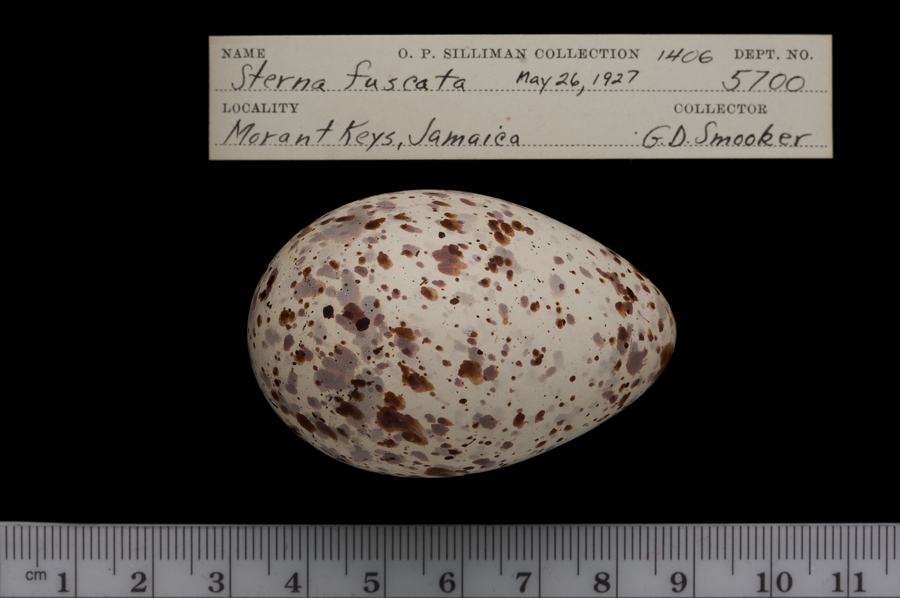 NAME O. P. SILLIMAN COLLECTION 1406 DEPT. NO.
Sterna fuscata May 26, 1927 5700
LOCALITY COLLECTOR
Morant Keys, Jamaica G.D. Smooker
cm 1 2 3 4 5 6 7 8 9 10 11